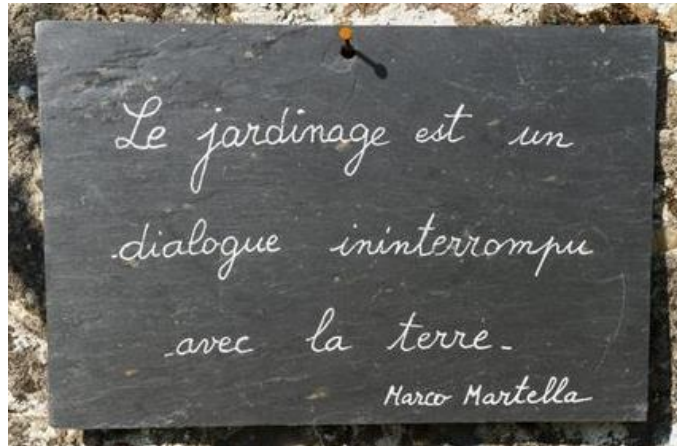 Le jardinage est un
dialogue ininterrompu
avec la terre.
Marco Martella